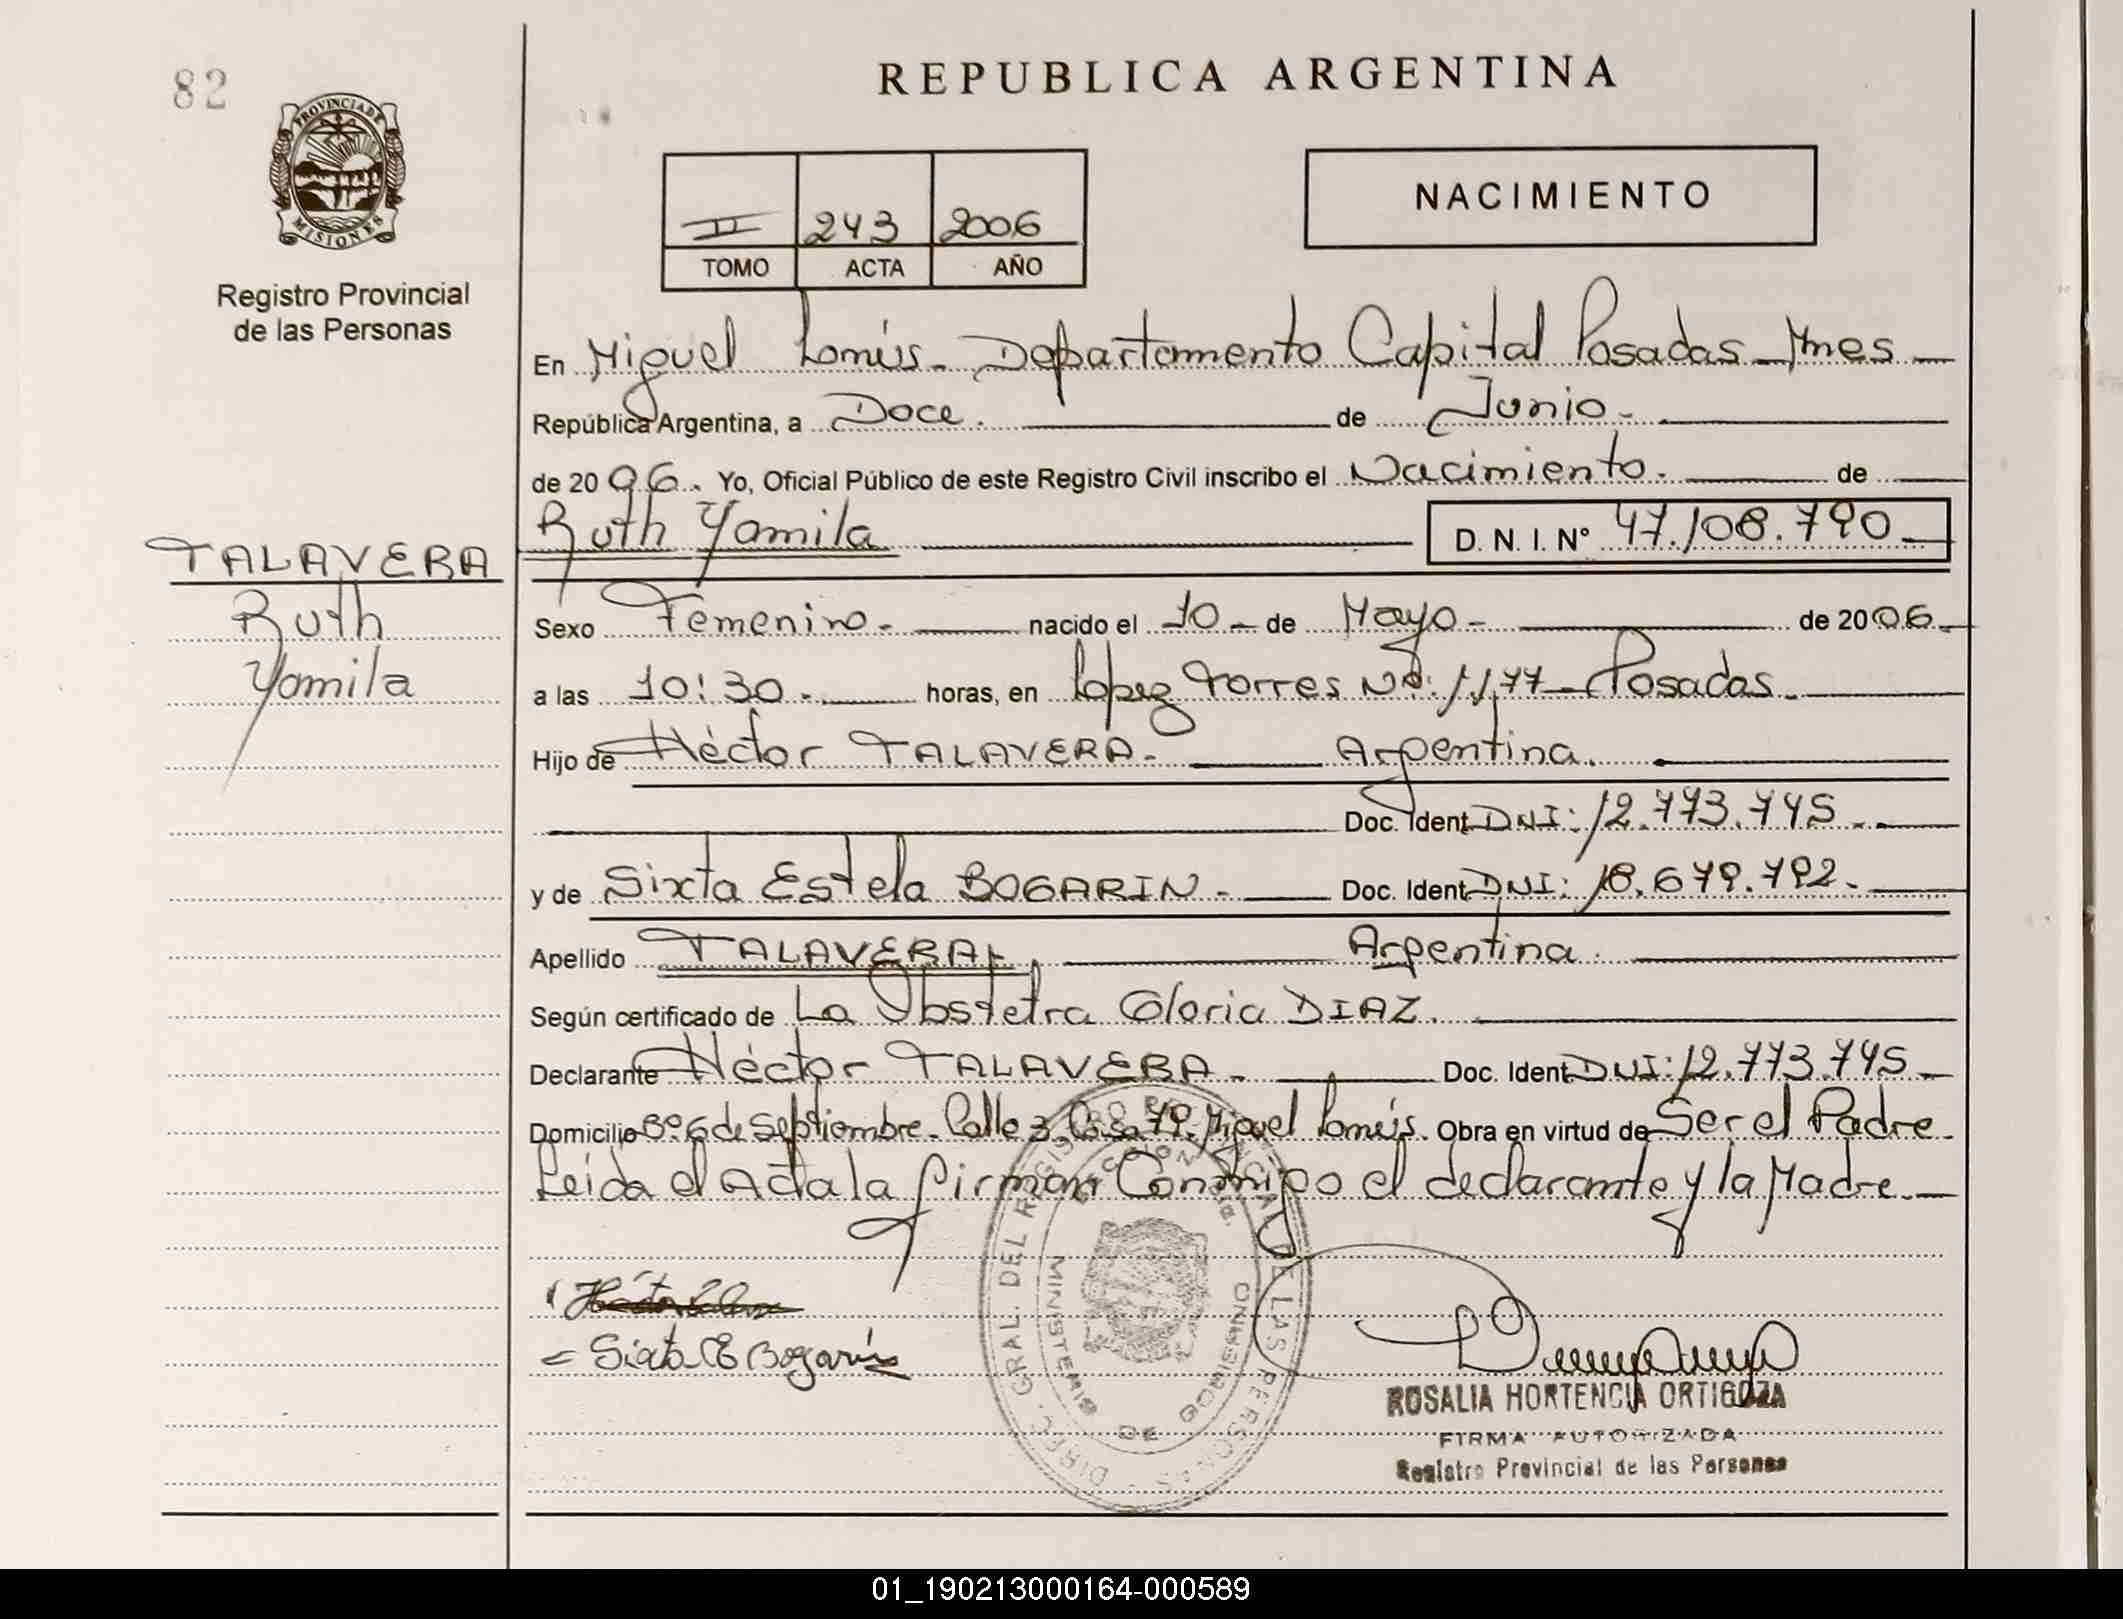 82
REPUBLICA ARGENTINA
PROVINCIA DE
MISIONES
Registro Provincial
de las Personas
II 243 2006
TOMO ACTA AÑO
NACIMIENTO
En Miguel Lanús - Departamento Capital Posadas - Mnes
República Argentina, a Doce. de Junio.
de 2006. Yo, Oficial Público de este Registro Civil inscribo el Nacimiento. de
Ruth Yamila D. N. I. Nº 47.108.790
TALAVERA
Ruth
Yamila
Sexo Femenino. nacido el 10 de Mayo - de 2006.
a las 10:30. horas, en López Torres Nº: 1177 - Posadas.
Hijo de Héctor TALAVERA. Argentina.
Doc. Ident. DNI: 12.773.745
y de Sixta Estela BOGARIN. Doc. Ident. DNI: 18.679.792.
Apellido TALAVERA Argentina.
Según certificado de La Obstetra Gloria DIAZ.
Declarante Héctor TALAVERA. Doc. Ident. DNI: 12.773.745
Domicilio Bº. 6 de Septiembre. Calle 3. Casa 79. Miguel Lanús. Obra en virtud de Ser el Padre.
Leída el Acta la firman Conmigo el declarante y la Madre.
DIREC. GRAL. DEL REGISTRO PROVINCIAL DE LAS PERSONAS
MINISTERIO DE GOBIERNO
Sixta E Bogarin
ROSALIA HORTENCIA ORTIGOZA
FIRMA AUTORIZADA
Registro Provincial de las Personas
01_190213000164-000589